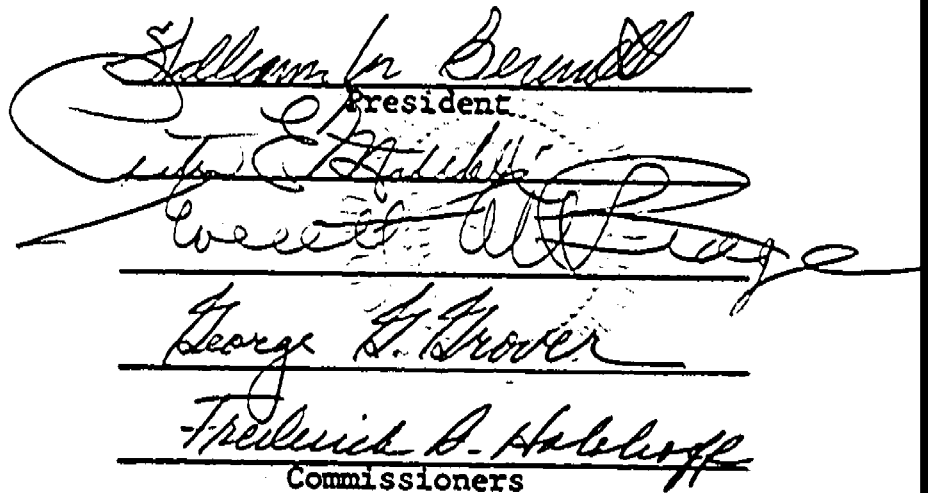 William M. Bennett
President
E. Mitchell
Everett
George G. Grover
Frederick B. Holoboff
Commissioners